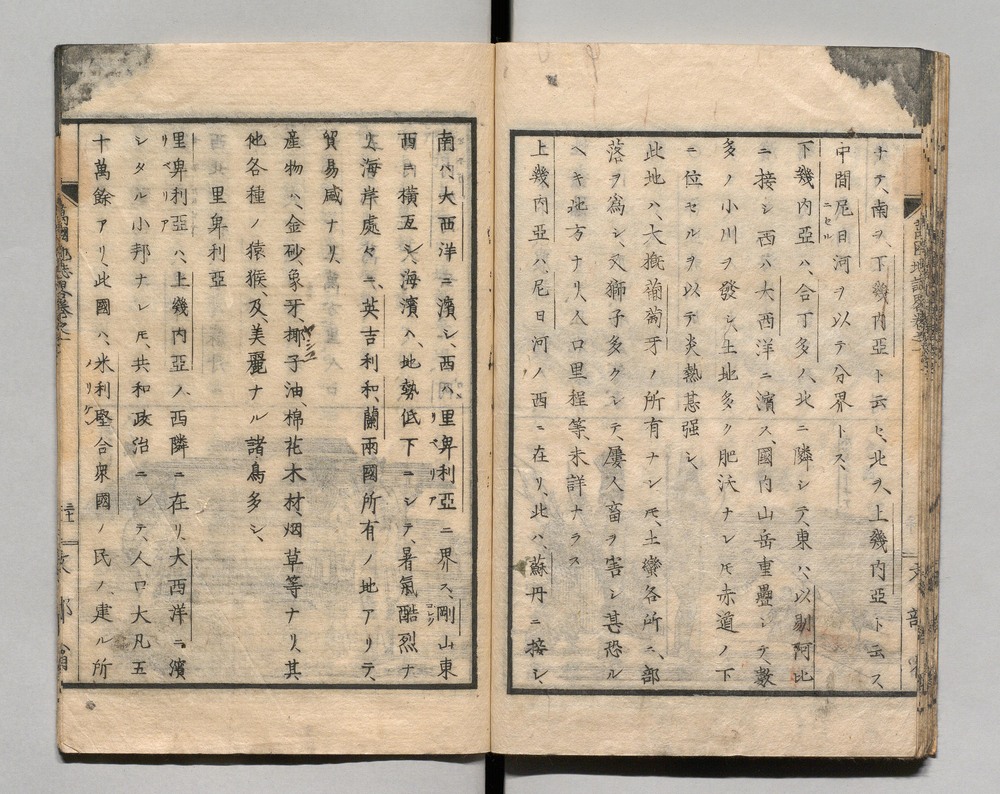 ナテ、南ヲ、下幾内亞ト云ヒ、北ヲ、上幾内亞ト云ス
中間尼日河ヲ以テ分界トス、
ニセル
下幾内亞ハ、合丁多ノ、北ニ隣シテ、東ハ、以剔阿比
ニ接シ、西ハ大西洋ニ濱ス、國内山岳重疊シテ、數
多ノ小川ヲ發シ、土地多ク肥沃ナレ𪜈赤道ノ下
ニ位セルヲ以テ炎熱甚强シ、
此地ハ、大抵葡萄牙ノ所有ナレ𪜈、土蠻各所ニ、部
落ヲ爲シ、又獅子多クシテ、屢人畜ヲ害シ甚恐ル
ヘキ地方ナリ人口里程等、未詳ナラス
上幾内亞ハ、尼日河ノ西ニ在リ、此ハ、蘇丹ニ接シ、
南ハ大西洋ニ濱シ、西ハ、里卑利亞ニ界ス、剛山東
リベリア
コング
西ニ横亙シ、海濱ハ、地勢低下ニシテ、暑氣酷烈ナ
リ、海岸處々ニ、英吉利和蘭兩國所有ノ地アリテ、
貿易盛ナリ、
產物ハ、金砂、象牙、椰子油、棉花木材、烟草等ナリ、其
ヤシユ
他各種ノ猿猴、及、美麗ナル諸鳥多シ、
里卑利亞
里卑利亞ハ、上幾内亞ノ、西隣ニ在リ、大西洋ニ、濱
リベリア
シタル小邦ナレ𪜈、共和政治ニシテ、人口大凡五
十萬餘アリ、此國ハ、米利堅合衆國ノ民ノ、建ル所
メリケン